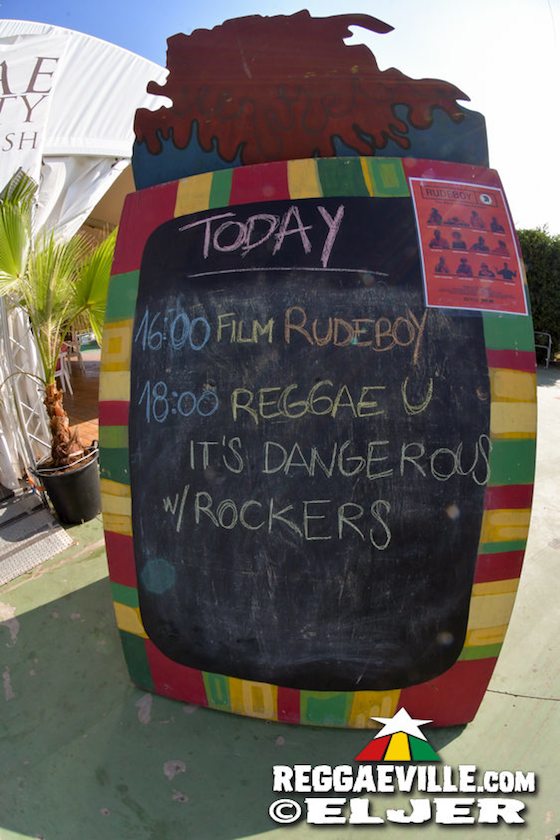 AE
TY
SH
RUDEBOY
TODAY
16:00 FILM RUDEBOY
18:00 REGGAE U
IT'S DANGEROUS
W/ROCKERS
REGGAEVILLE.COM
©ELJER